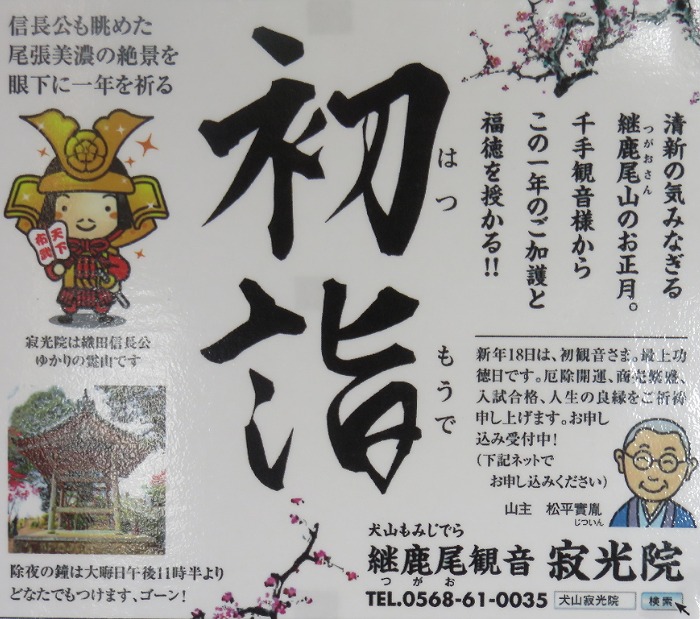 信長公も眺めた
尾張美濃の絶景を
眼下に一年を祈る
天下
布武
寂光院は織田信長公
ゆかりの霊山です
除夜の鐘は大晦日午後11時半より
どなたでもつけます、ゴーン!
初詣
はつ
もうで
清新の気みなぎる
継鹿尾山のお正月。
つがおさん
千手観音様から
この一年のご加護と
福徳を授かる!!
新年18日は、初観音さま。最上功
徳日です。厄除開運、商売繁盛、
入試合格、人生の良縁をご祈祷
申し上げます。お申し
込み受付中!
(下記ネットで
お申し込みください)
山主 松平實胤
じついん
犬山もみじでら
継鹿尾観音 寂光院
つがお
TEL.0568-61-0035 犬山寂光院 検索